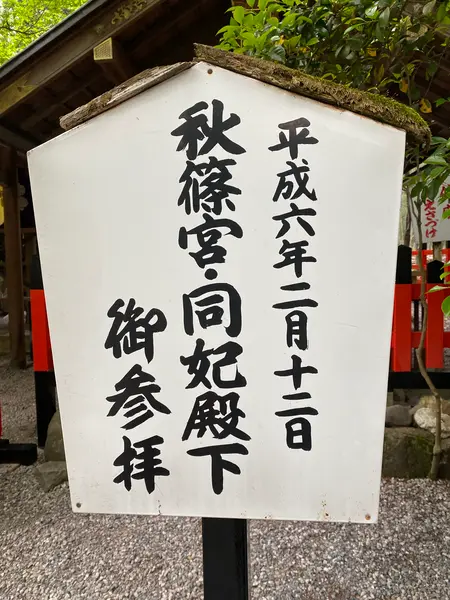 平成六年二月十二日
秋篠宮・同妃殿下
御参拝
えさづけ